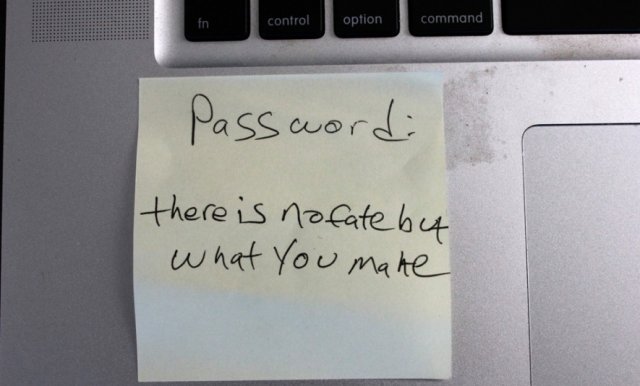 fn control option command
Password:
there is no fate but
what You make